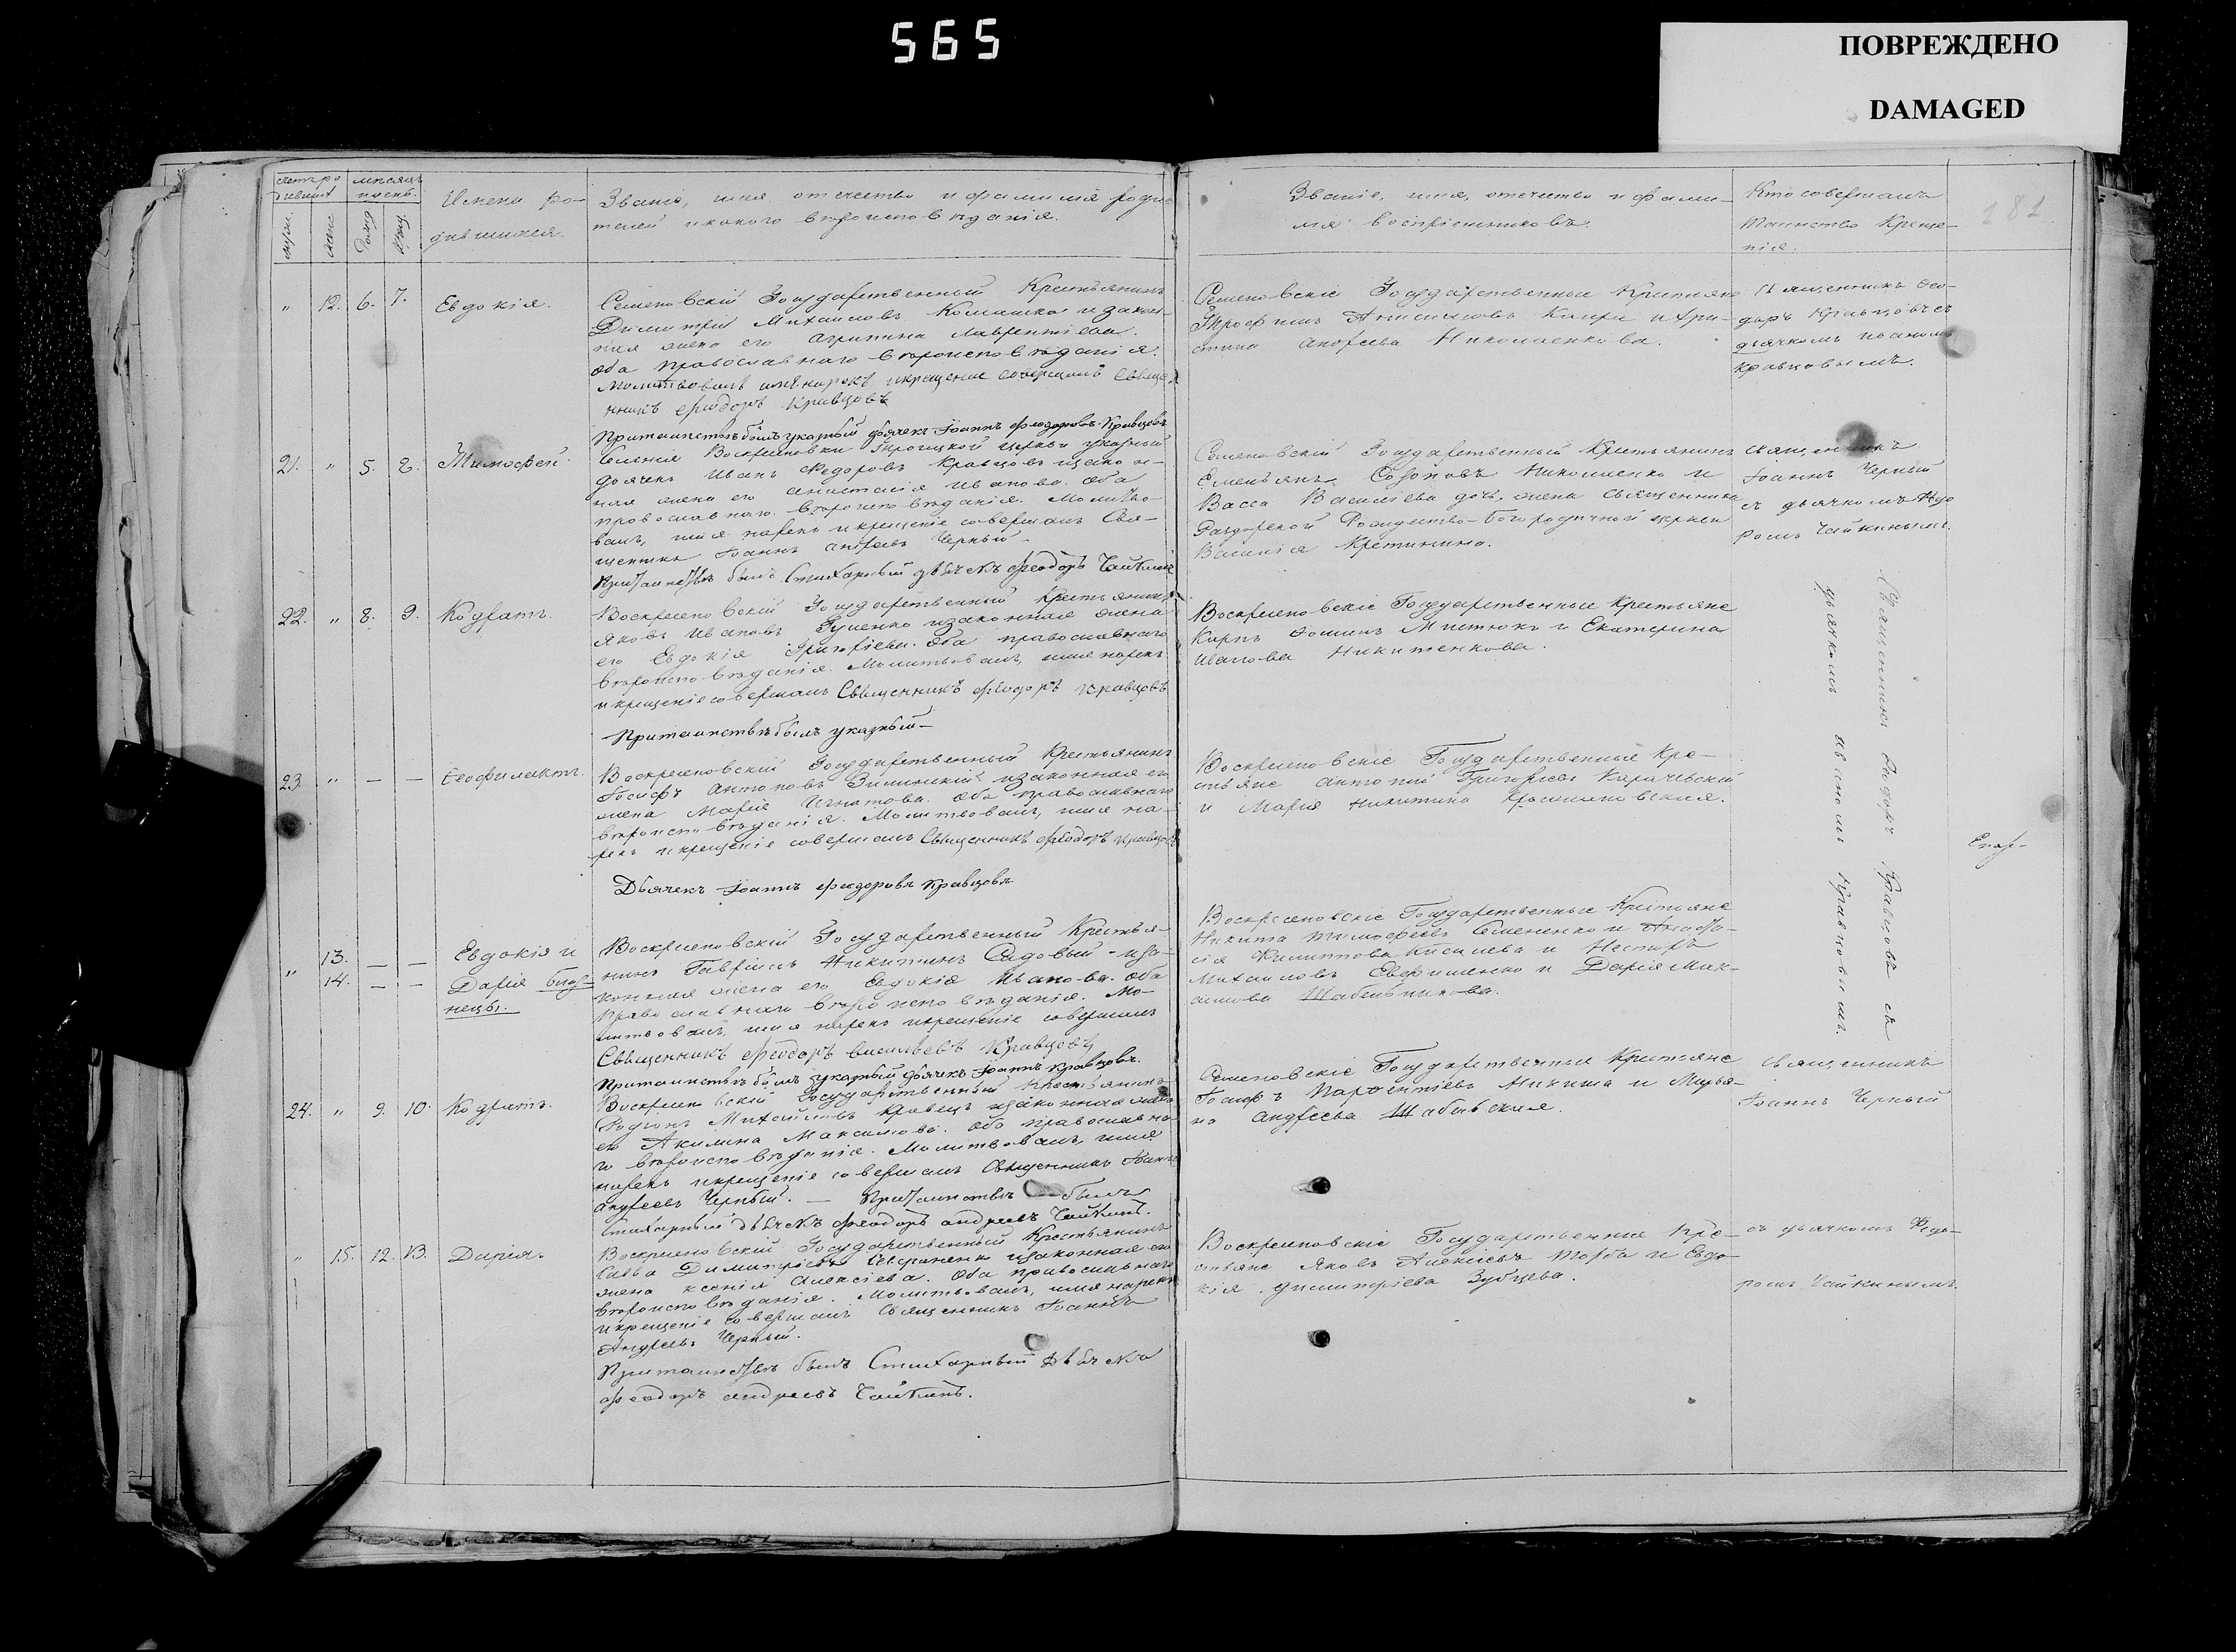 565
ПОВРЕЖДЕНО
DAMAGED
Имена ро-
дившихся.
Званіе, имя отчество и фамилія роди-
телей и какого вѣроисповѣданія.
Званіе, имя, отчество и фами-
лія воспріемниковъ.
Кто совершалъ
таинство Креще-
нія.
181
" 12. 6. 7. Евдокія.
Семеновскій Государственный Крестьянинъ
Димитрій Михаиловъ и закон-
ная жена его Агрипина Лаврентіева.
оба православнаго вѣроисповѣданія.
Молитвовалъ имя нарекъ и крещеніе совершалъ Священ
никъ Феодоръ Кравцовъ
При таинствѣ былъ указный дьячекъ Іоаннъ Феодоровъ Кравцовъ
Семеновскіе Государственные Крестьяне
Трофимъ и Хри-
стина Андреева Николаенкова.
Священникъ Фео-
доръ Кравцовъ съ
дьячкомъ Іоаномъ
Кравцовымъ.
21. " 5. 8. Тимофей.
Селенія Воскресеновки Троицкой церкви указный
дьячекъ Иванъ Федоровъ Кравцовъ и закон-
ная жена его Анастасія Иванова. оба
православнаго вѣроисповѣданія. Молитво-
валъ, имя нарекъ и крещеніе совершалъ Свя-
щенникъ Іоаннъ Андреевъ Черный
При таинствѣ былъ Стихарный дьячекъ Феодоръ Чайкинъ
Семеновскій Государственный Крестьянинъ
Емельянъ Созоновъ Николаенко и
Васса Василіева дочь, жена Священника
Раздорской Рождество-Богородичной церкви
Василія Кретинина.
Священникъ
Іоаннъ Черный
съ дьячкомъ Фео
ромъ Чайкинымъ.
22. " 8. 9. Кодратъ.
Воскресеновскій Государственный Крестьянинъ
Яковъ Ивановъ Гуменко и законная жена
его Евдокія Григоріева. оба православнаго
вѣроисповѣданія. Молитвовалъ, имя нарекъ
и крещеніе совершалъ Священникъ Феодоръ Кравцовъ
При таинствѣ былъ указный
Воскресеновскіе Государственные Крестьяне
Карпъ Фоминъ и Екатерина
Иванова Никитенкова.
Священникъ Феодоръ Кравцовъ съ
дьячкомъ Иваномъ Кравцовымъ.
23. " — — Феофилактъ.
Воскресеновскій Государственный Крестьянинъ
Іосифъ Антоновъ и законная его
жена Марія Игнатова. оба православнаго
вѣроисповѣданія. Молитвовалъ, имя на-
рекъ и крещеніе совершалъ Священникъ Феодоръ Кравцовъ
Дьячекъ Іоаннъ Феодоровъ Кравцовъ
Воскресеновскіе Государственные Кре-
стьяне Антоній Григорьевъ Карачевскій
и Марія Никитина
" 13. — — Евдокія и
14. — — Дарія близ-
нецы.
Воскресеновскій Государственный Крестья-
нинъ Гавріилъ Никитинъ Садовый и за-
конная жена его Евдокія Иванова. оба
православнаго вѣроисповѣданія. Мо-
литвовалъ, имя нарекъ и крещеніе совершалъ
Священникъ Феодоръ Васильевъ Кравцовъ
При таинствѣ былъ указный дьячекъ Іоаннъ Кравцовъ.
Воскресеновскіе Государственные Крестьяне
Никита Тимофеевъ Семененко и Анаста-
сія Филиппова Киселева и Несторъ
Михаиловъ Ефименко и Дарія Мак-
симова Шабельникова.
24. " 9. 10. Кодратъ.
Воскресеновскій Государственный Крестьянинъ
Родіонъ Михайловъ Кравецъ и законная жена
его Акилина Максимова. оба православна-
го вѣроисповѣданія. Молитвовалъ, имя
нарекъ и крещеніе совершалъ Священникъ Іоаннъ
Андреевъ Черный. — При таинствѣ былъ
Стихарный дьячекъ Феодоръ Андреевъ Чайкинъ.
Семеновскіе Государственные Крестьяне
Іосифъ и Марья-
на Андреева
Священникъ
Іоаннъ Черный
" 15. 12. 13. Дарія.
Воскресеновскій Государственный Крестьянинъ
Савва Димитріевъ и законная его
жена Ксенія Алексіева. Оба православнаго
вѣроисповѣданія. Молитвовалъ, имя нарекъ
и крещеніе совершалъ Священникъ Іоаннъ
Андреевъ Черный.
При таинствѣ былъ Стихарный дьячекъ
Феодоръ Андреевъ Чайкинъ.
Воскресеновскіе Государственные Кре-
стьяне Яковъ Алексіевъ Торба и Евдо-
кія Димитріева Зубцева.
съ дьячкомъ Федо-
ромъ Чайкинымъ.